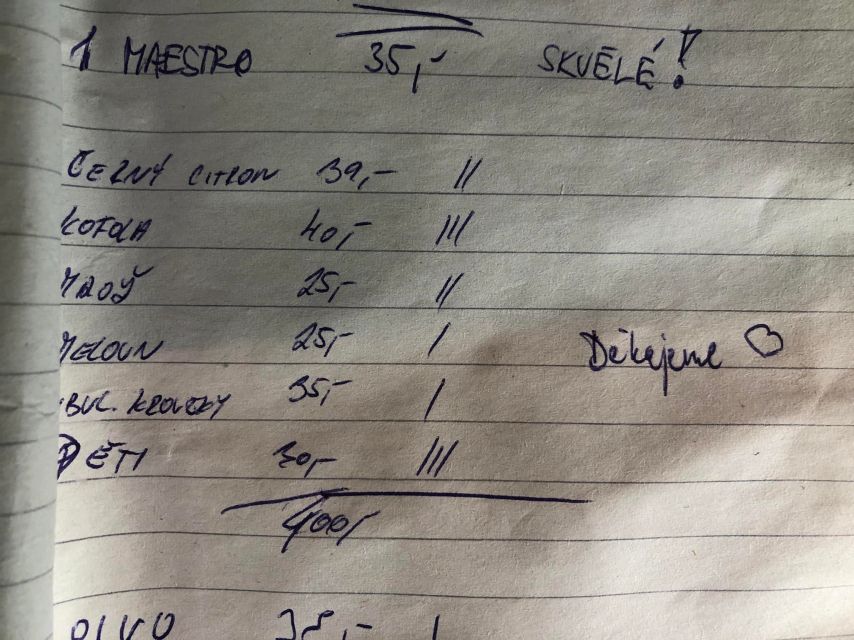 1 MAESTRO 35,- SKVĚLÉ!
ČERNÝ CITRON 39,- ||
KOFOLA 40,- |||
25,- ||
MELOUN 25,- |
35,- |
DĚTI 30,- |||
Děkujeme ♡
400,-
PIVO 38,- |